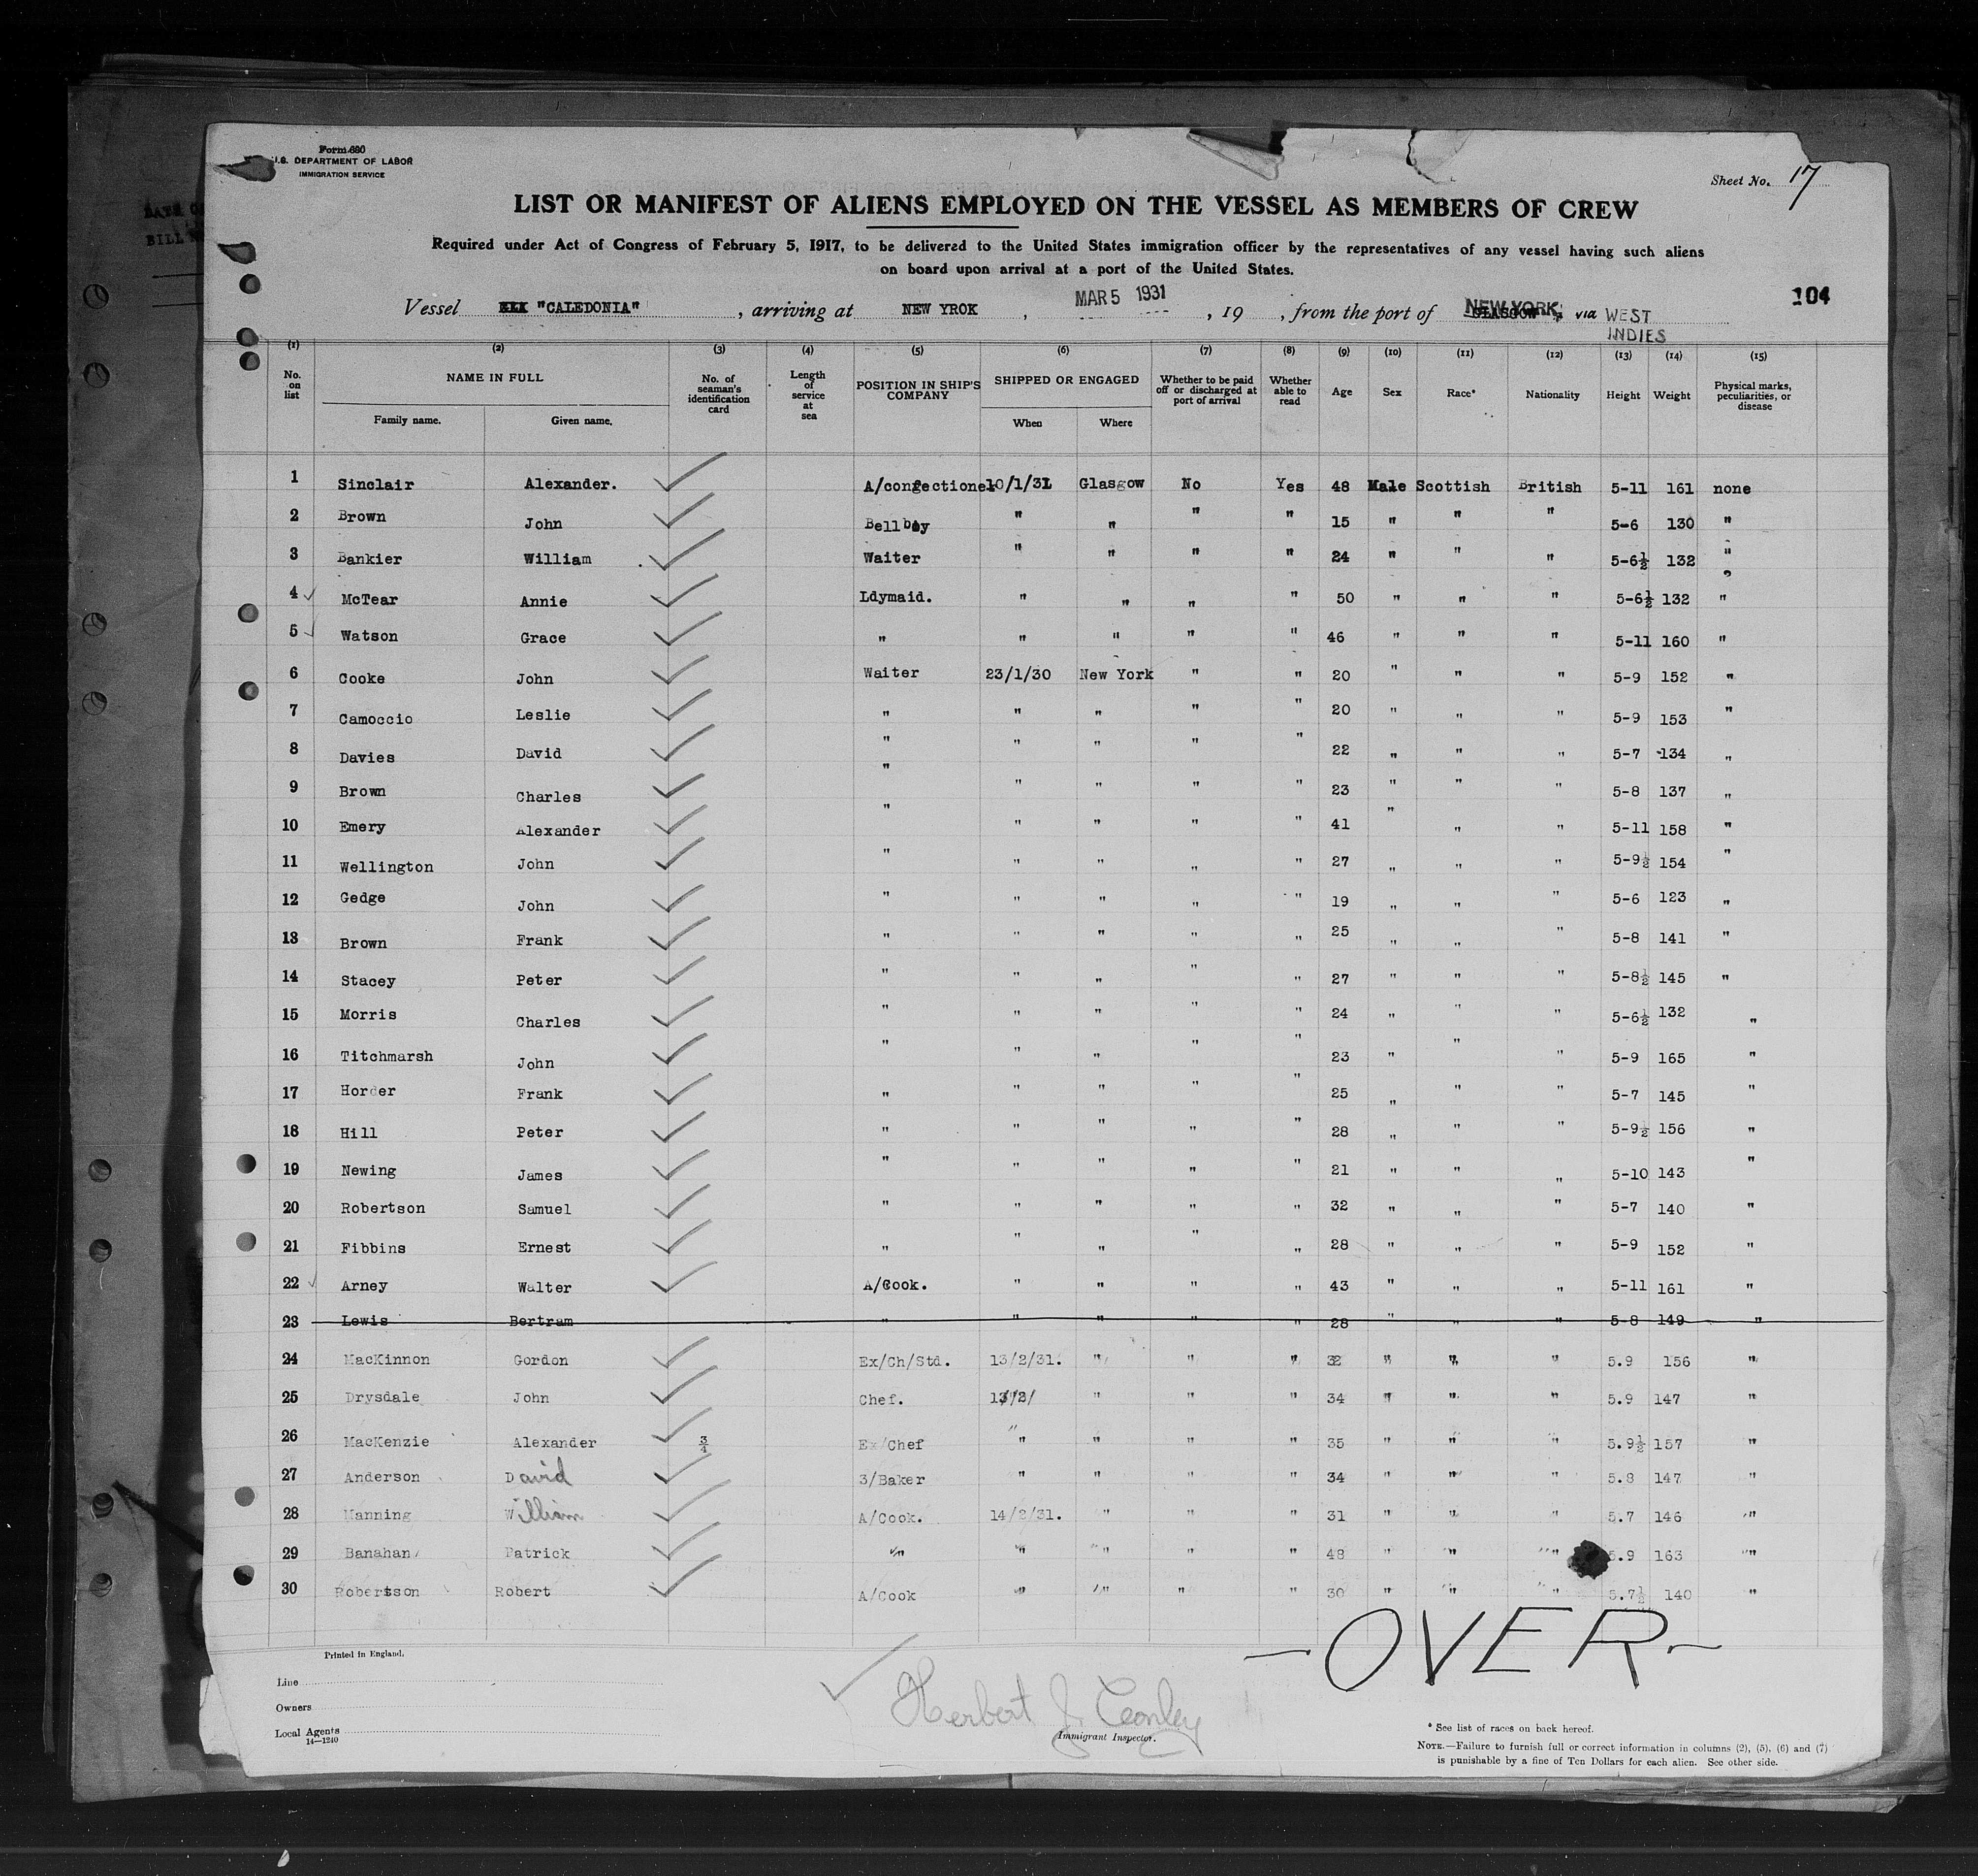 Form 680
U.S. DEPARTMENT OF LABOR
IMMIGRATION SERVICE
Sheet No. 17
LIST OR MANIFEST OF ALIENS EMPLOYED ON THE VESSEL AS MEMBERS OF CREW
Required under Act of Congress of February 5, 1917, to be delivered to the United States immigration officer by the representatives of any vessel having such aliens
on board upon arrival at a port of the United States.
104
Vessel "CALEDONIA" , arriving at NEW YROK , MAR 5 1931 , 19 , from the port of NEW YORK, via WEST
INDIES
(1) (2) (3) (4) (5) (6) (7) (8) (9) (10) (11) (12) (13) (14) (15)
No. on list NAME IN FULL No. of seaman's identification card Length of service at sea POSITION IN SHIP'S COMPANY SHIPPED OR ENGAGED Whether to be paid off or discharged at port of arrival Whether able to read Age Sex Race* Nationality Height Weight Physical marks, peculiarities, or disease
Family name. Given name. When Where
1 Sinclair Alexander. A/confectioner 10/1/31 Glasgow No Yes 48 Male Scottish British 5-11 161 none
2 Brown John Bell boy " " " " 15 " " " 5-6 130 "
3 Bankier William Waiter " " " " 24 " " " 5-6½ 132 "
4 McTear Annie Ldymaid. " " " " 50 " " " 5-6½ 132 "
5 Watson Grace " " " " " 46 " " " 5-11 160 "
6 Cooke John Waiter 23/1/30 New York " " 20 " " " 5-9 152 "
7 Camoccio Leslie " " " " " 20 " " " 5-9 153 "
8 Davies David " " " " " 22 " " " 5-7 134 "
9 Brown Charles " " " " " 23 " " " 5-8 137 "
10 Emery Alexander " " " " " 41 " " " 5-11 158 "
11 Wellington John " " " " " 27 " " " 5-9½ 154 "
12 Gedge John " " " " " 19 " " " 5-6 123 "
13 Brown Frank " " " " " 25 " " " 5-8 141 "
14 Stacey Peter " " " " " 27 " " " 5-8½ 145 "
15 Morris Charles " " " " " 24 " " " 5-6½ 132 "
16 Titchmarsh John " " " " " 23 " " " 5-9 165 "
17 Horder Frank " " " " " 25 " " " 5-7 145 "
18 Hill Peter " " " " " 28 " " " 5-9½ 156 "
19 Newing James " " " " " 21 " " " 5-10 143 "
20 Robertson Samuel " " " " " 32 " " " 5-7 140 "
21 Fibbins Ernest " " " " " 28 " " " 5-9 152 "
22 Arney Walter A/Cook. " " " " 43 " " " 5-11 161 "
23 Lewis Bertram " " " " " 28 " " " 5-8 149 "
24 MacKinnon Gordon Ex/Ch/Std. 13/2/31. " " " 32 " " " 5.9 156 "
25 Drysdale John Chef. 13/2/ " " " 34 " " " 5.9 147 "
26 MacKenzie Alexander ¾ Ex/Chef " " " " 35 " " " 5.9½ 157 "
27 Anderson David 3/Baker " " " " 34 " " " 5.8 147 "
28 Manning William A/Cook. 14/2/31. " " " 31 " " " 5.7 146 "
29 Banahan Patrick " " " " " 48 " " " 5.9 163 "
30 Robertson Robert A/Cook " " " " 30 " " " 5.7½ 140 "
-OVER-
Printed in England.
Line
Owners
Local Agents
14—1240
Herbert J. Conley
Immigrant Inspector.
* See list of races on back hereof.
NOTE.—Failure to furnish full or correct information in columns (2), (5), (6) and (7)
is punishable by a fine of Ten Dollars for each alien. See other side.